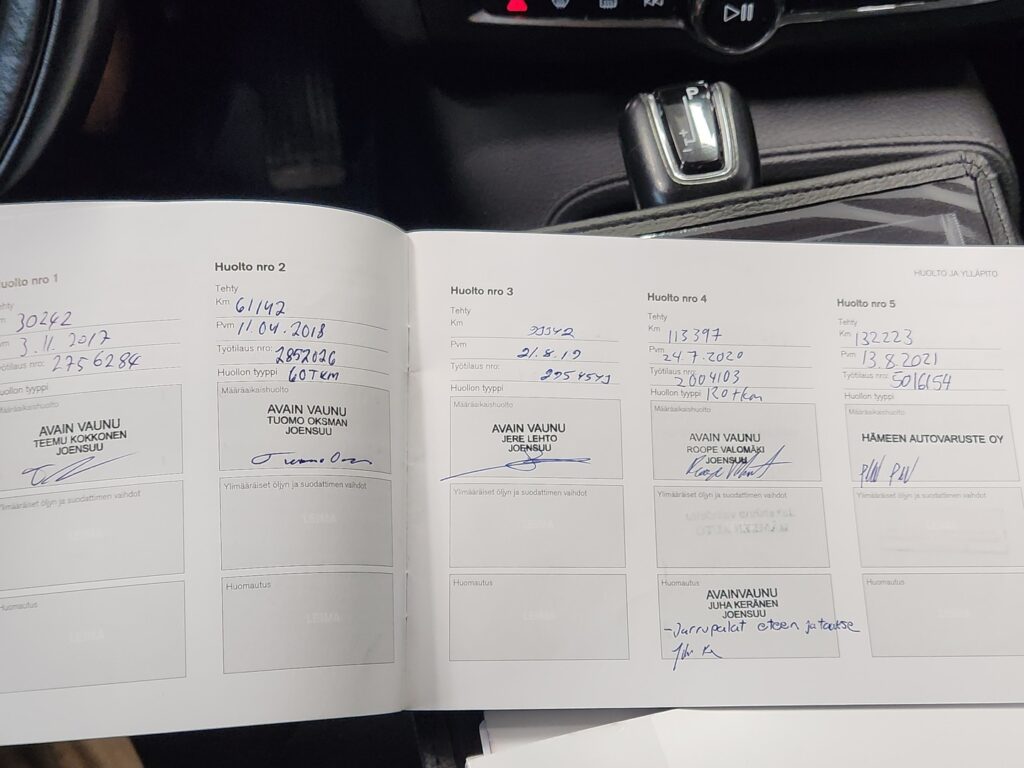 P
HUOLTO JA YLLÄPITO
Huolto nro 1
Tehty
Km 30242
Pvm 3.11.2017
Työtilaus nro: 2756284
Huollon tyyppi
Määräaikaishuolto
AVAIN VAUNU
TEEMU KOKKONEN
JOENSUU
Ylimääräiset öljyn ja suodattimen vaihdot
LEIMA
Huomautus
LEIMA
Huolto nro 2
Tehty
Km 61142
Pvm 11.04.2018
Työtilaus nro: 2852026
Huollon tyyppi 60TKM
Määräaikaishuolto
AVAIN VAUNU
TUOMO OKSMAN
JOENSUU
Ylimääräiset öljyn ja suodattimen vaihdot
LEIMA
Huomautus
LEIMA
Huolto nro 3
Tehty
Km
Pvm 21.8.19
Työtilaus nro:
Huollon tyyppi
Määräaikaishuolto
AVAIN VAUNU
JERE LEHTO
JOENSUU
Ylimääräiset öljyn ja suodattimen vaihdot
LEIMA
Huomautus
LEIMA
Huolto nro 4
Tehty
Km 113397
Pvm 24.7.2020
Työtilaus nro: 2004103
Huollon tyyppi
Määräaikaishuolto
AVAIN VAUNU
ROOPE VALOMÄKI
JOENSUU
Ylimääräiset öljyn ja suodattimen vaihdot
Huomautus
AVAINVAUNU
JUHA KERÄNEN
JOENSUU
-Jarrupalat eteen ja taakse
Huolto nro 5
Tehty
Km 132223
Pvm 13.8.2021
Työtilaus nro: 5016154
Huollon tyyppi
Määräaikaishuolto
HÄMEEN AUTOVARUSTE OY
Ylimääräiset öljyn ja suodattimen vaihdot
LEIMA
Huomautus
LEIMA